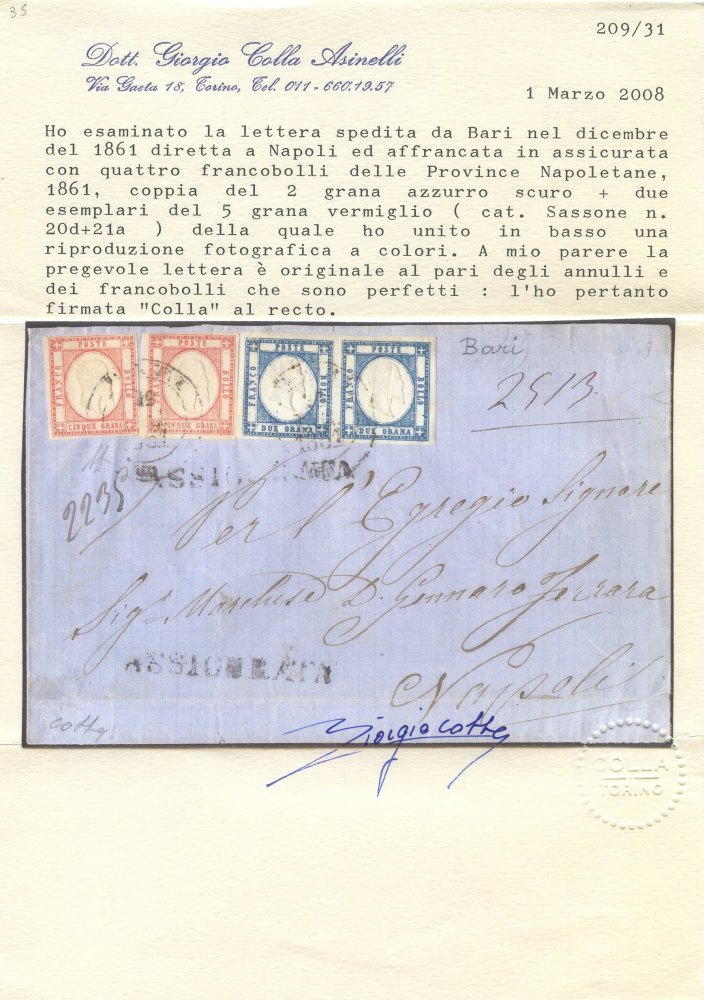 35
209/31
Dott. Giorgio Colla Asinelli
Via Gaeta 18, Torino, Tel. 011-660.19.57
1 Marzo 2008
Ho esaminato la lettera spedita da Bari nel dicembre
del 1861 diretta a Napoli ed affrancata in assicurata
con quattro francobolli delle Province Napoletane,
1861, coppia del 2 grana azzurro scuro + due
esemplari del 5 grana vermiglio ( cat. Sassone n.
20d+21a ) della quale ho unito in basso una
riproduzione fotografica a colori. A mio parere la
pregevole lettera è originale al pari degli annulli e
dei francobolli che sono perfetti : l'ho pertanto
firmata "Colla" al recto.
POSTE POSTE POSTE POSTE
FRANCO BOLLO FRANCO BOLLO FRANCO BOLLO FRANCO BOLLO
CINQUE GRANA CINQUE GRANA DUE GRANA DUE GRANA
Bari
2513
2235
ASSICURATA
Per l'Egregio Signore
Sigr Marchese D. Gennaro Ferrara
ASSICURATA
Napoli
Colla
Giorgio Colla
COLLA
TORINO